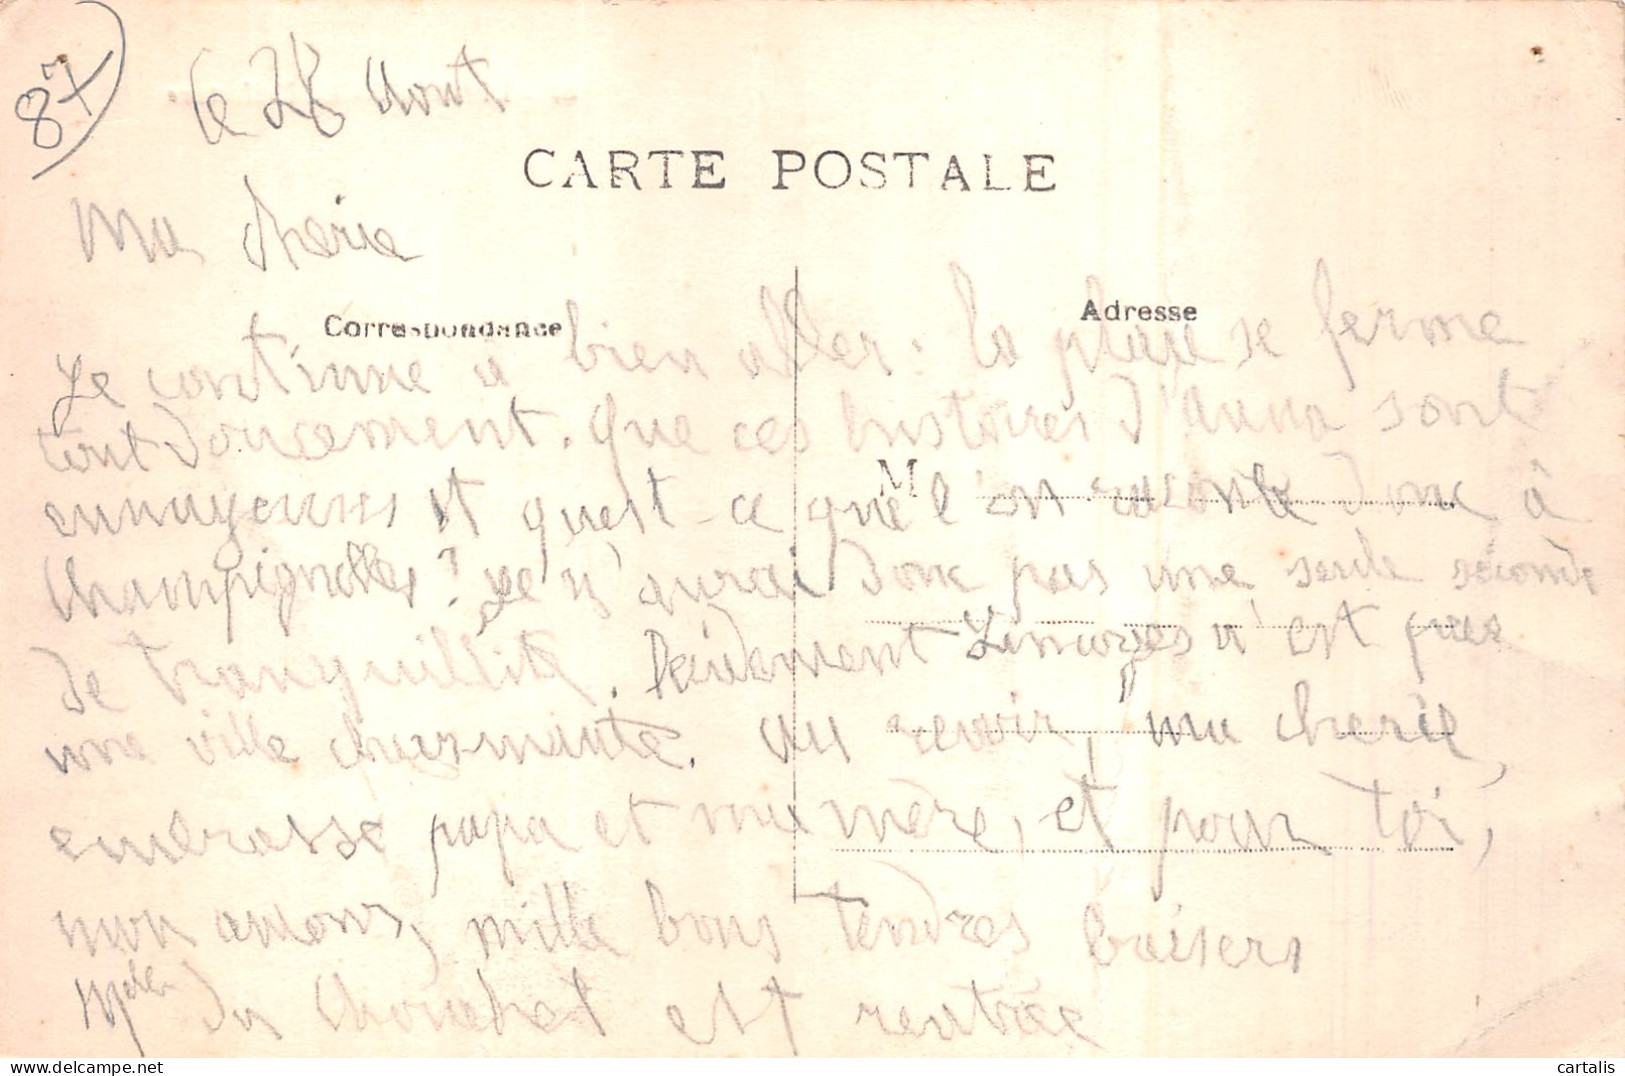 87
Le 28 Aout
CARTE POSTALE
Ma cherie
Correspondance
Adresse
Je continue a bien aller : la plaie se ferme
tout doucement. Que ces histoires d'anna sont
ennuyeuses et quest-ce que l'on raconte donc à
M
Champignolles ? Je n'aurai donc pas une seule seconde
de tranquillité. Décidement Limoges n'est pas
une ville charmante. Au revoir, ma cherie,
embrasse papa et ma mère, et pour toi,
mon amour, mille bons tendres baisers
Mdele du est rentrée
delcampe.net
cartalis